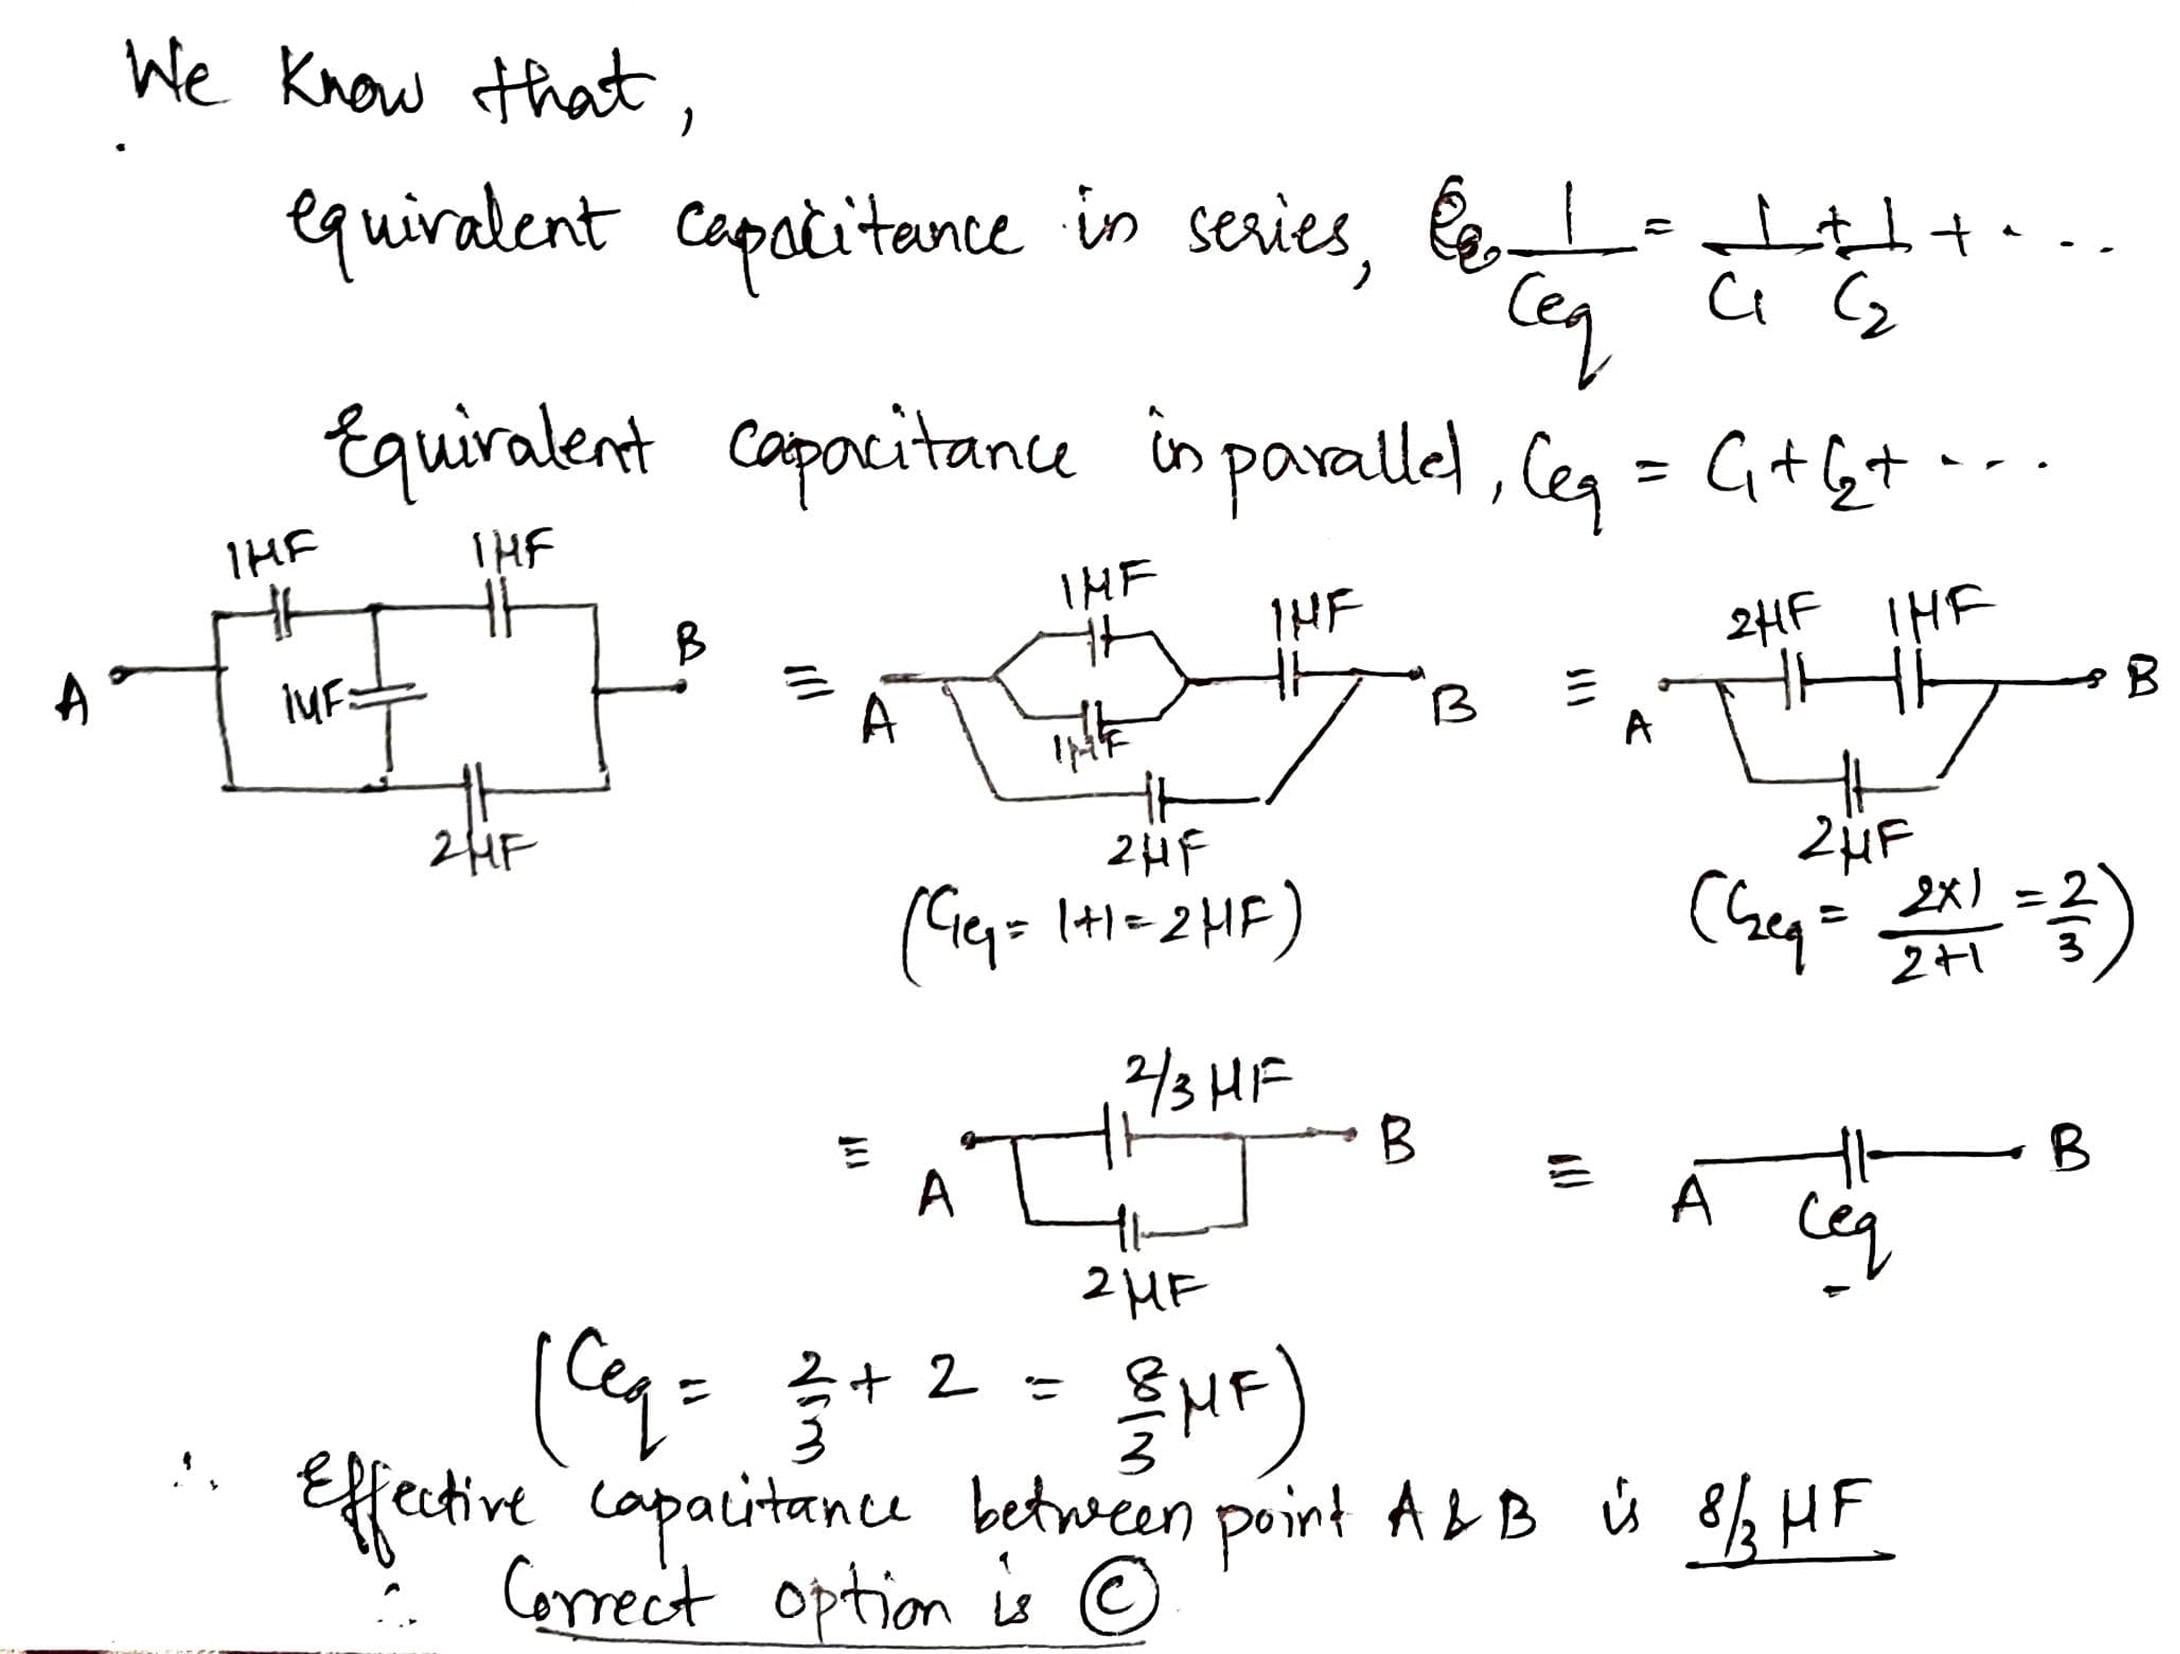 We Know that,
equivalent capacitance in series, 1/Ceq = 1/C1 + 1/C2 + ....
Equivalent capacitance in parallel, Ceq = C1 + C2 + ....
1μF 1μF 1μF 1μF 2μF 1μF
A 1μF B ≡ A 1μF B ≡ A B
2μF 2μF 2μF
(C1eq = 1+1 = 2μF) (C2eq = 2×1/2+1 = 2/3)
2/3 μF
≡ A B ≡ A B
2μF Ceq
(Ceq = 2/3 + 2 = 8/3 μF)
∴ Effective capacitance between point A & B is 8/3 μF
∴ Correct option is Ⓒ